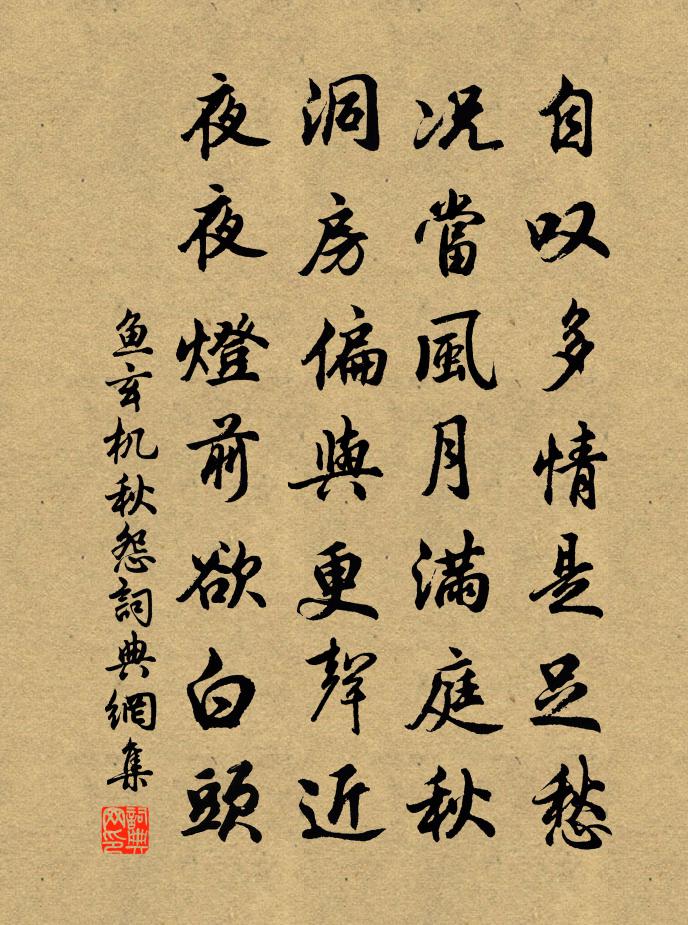 自叹多情是足愁
况當風月滿庭秋
洞房偏與更聲近
夜夜燈前欲白頭
鱼玄机秋怨詞典網集
詞典网印